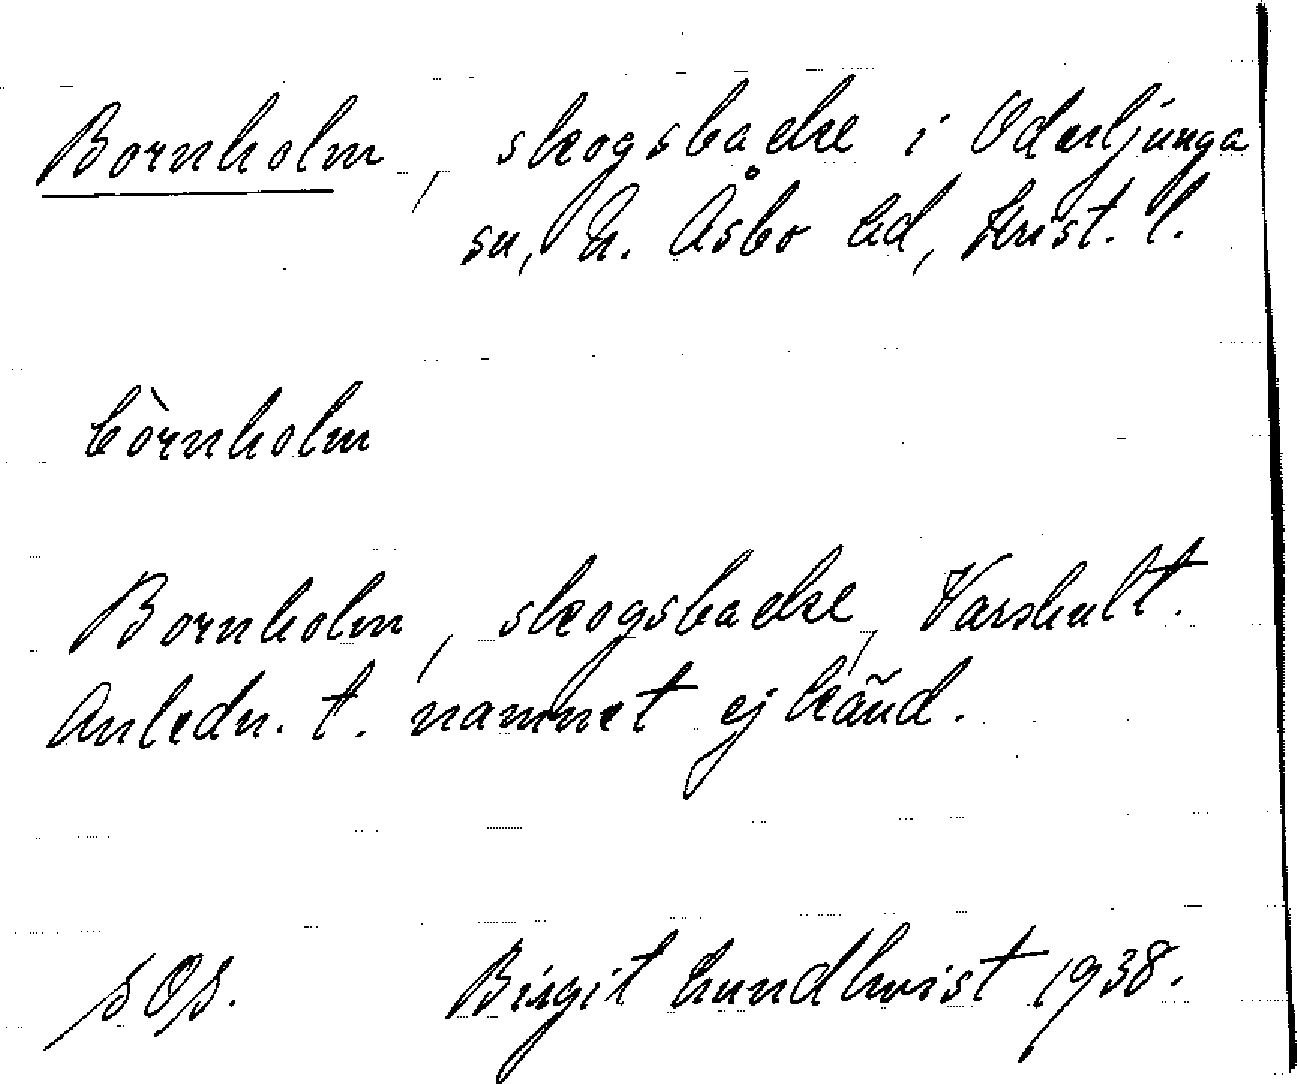 Bornholm, skogsbacke i Oderljunga
sn, N. Åsbo hd, Krist. l.
bòrnholm
Bornholm, skogsbacke, Varshult.
Anledn. t. namnet ej känd.
SOS. Birgit Lundkvist 1938.